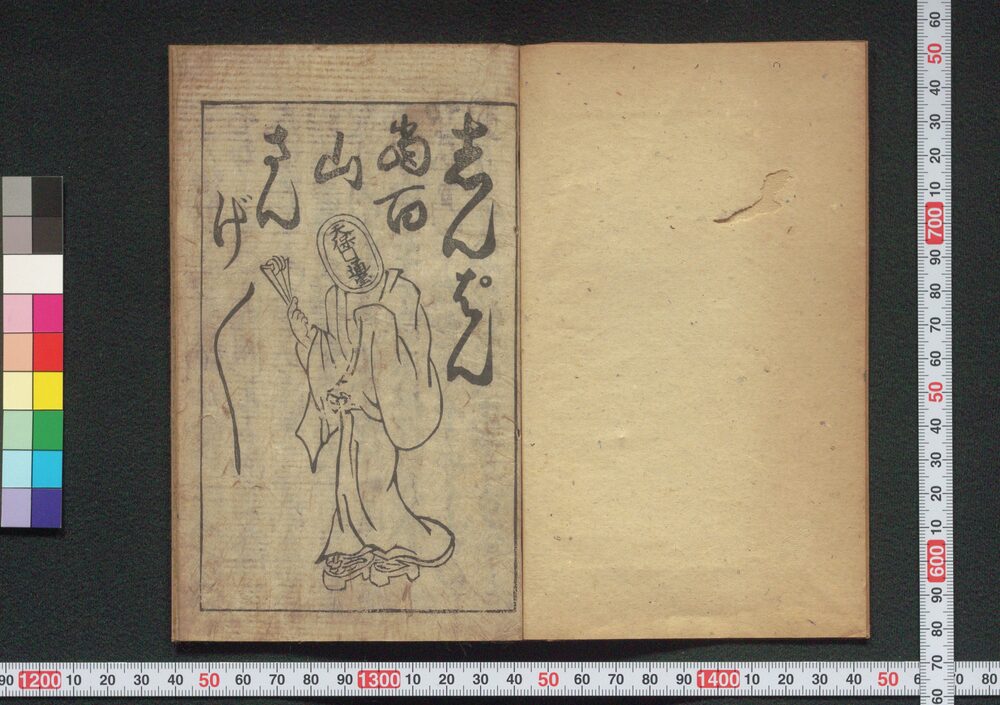 志んぱん
當百
山
さん
げ
天保通寶
60 50 40 30 20 10 700 90 80 70 60 50 40 30 20 10 600 90 80 70 60
90 1200 10 20 30 40 50 60 70 80 90 1300 10 20 30 40 50 60 70 80 90 1400 10 20 30 40 50 80